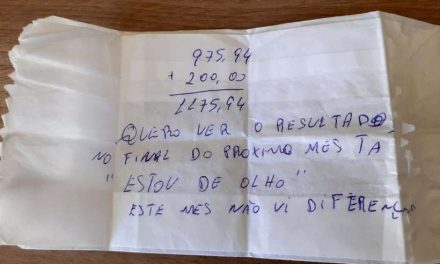 975,94
+ 200,00
1175,94
QUERO VER O RESULTADO
NO FINAL DO PROXIMO MES TA
"ESTOU DE OLHO"
ESTE MES NÃO VI DIFERENÇA